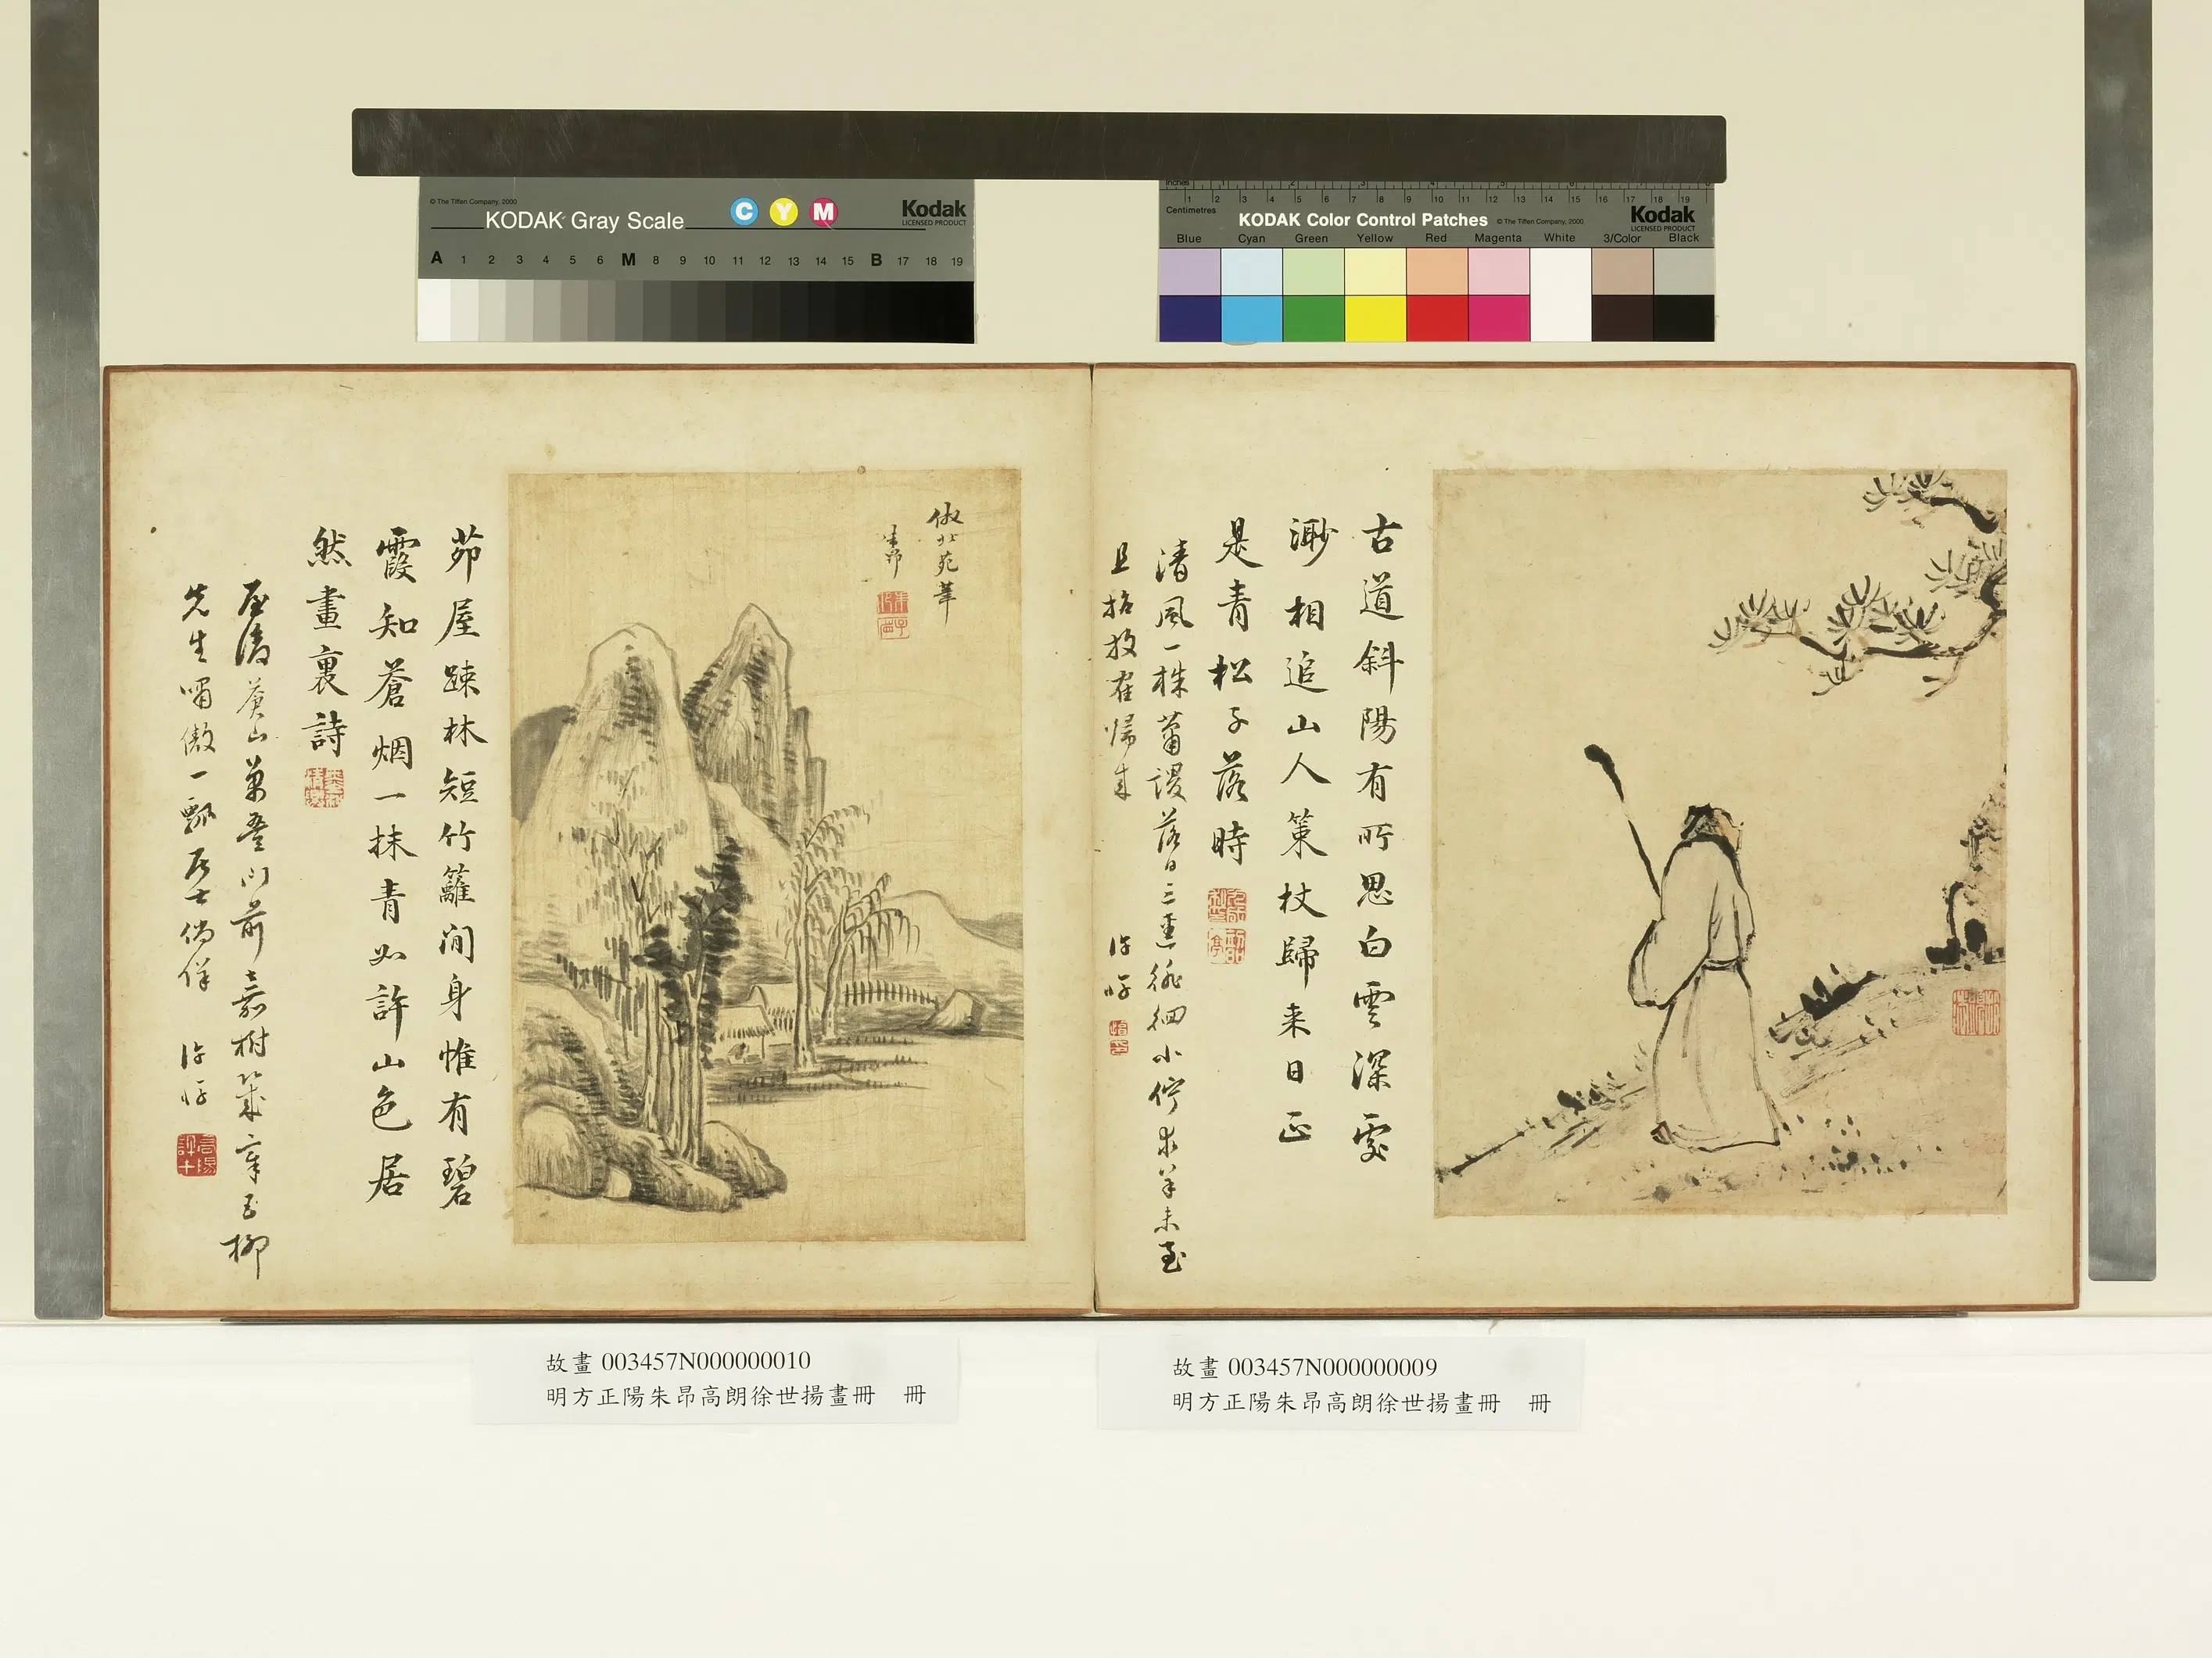 © The Tiffen Company, 2000
KODAK Gray Scale
C Y M
Kodak
LICENSED PRODUCT
A 1 2 3 4 5 6 M 8 9 10 11 12 13 14 15 B 17 18 19
Inches
1 2 3 4 5 6 7 8 9 10 11 12 13 14 15 16 17 18 19
Centimetres
KODAK Color Control Patches
© The Tiffen Company, 2000
Kodak
LICENSED PRODUCT
Blue Cyan Green Yellow Red Magenta White 3/Color Black
古道斜陽有所思白雲深處
渺相追山人策杖歸來日正
是青松子落時
清風一株蕭謖落日三徑徘徊小佇
未至
且
歸來
倣北苑筆
茆屋踈林短竹籬閒身惟有碧
霞知蒼烟一抹青如許山色居
然畫裏詩
屋後蒼山萬疊門前嘉樹
柳
先生嘯傲一瓢居士徜徉
故畫 003457N000000010
明方正陽朱昂高朗徐世揚畫冊 冊
故畫 003457N000000009
明方正陽朱昂高朗徐世揚畫冊 冊